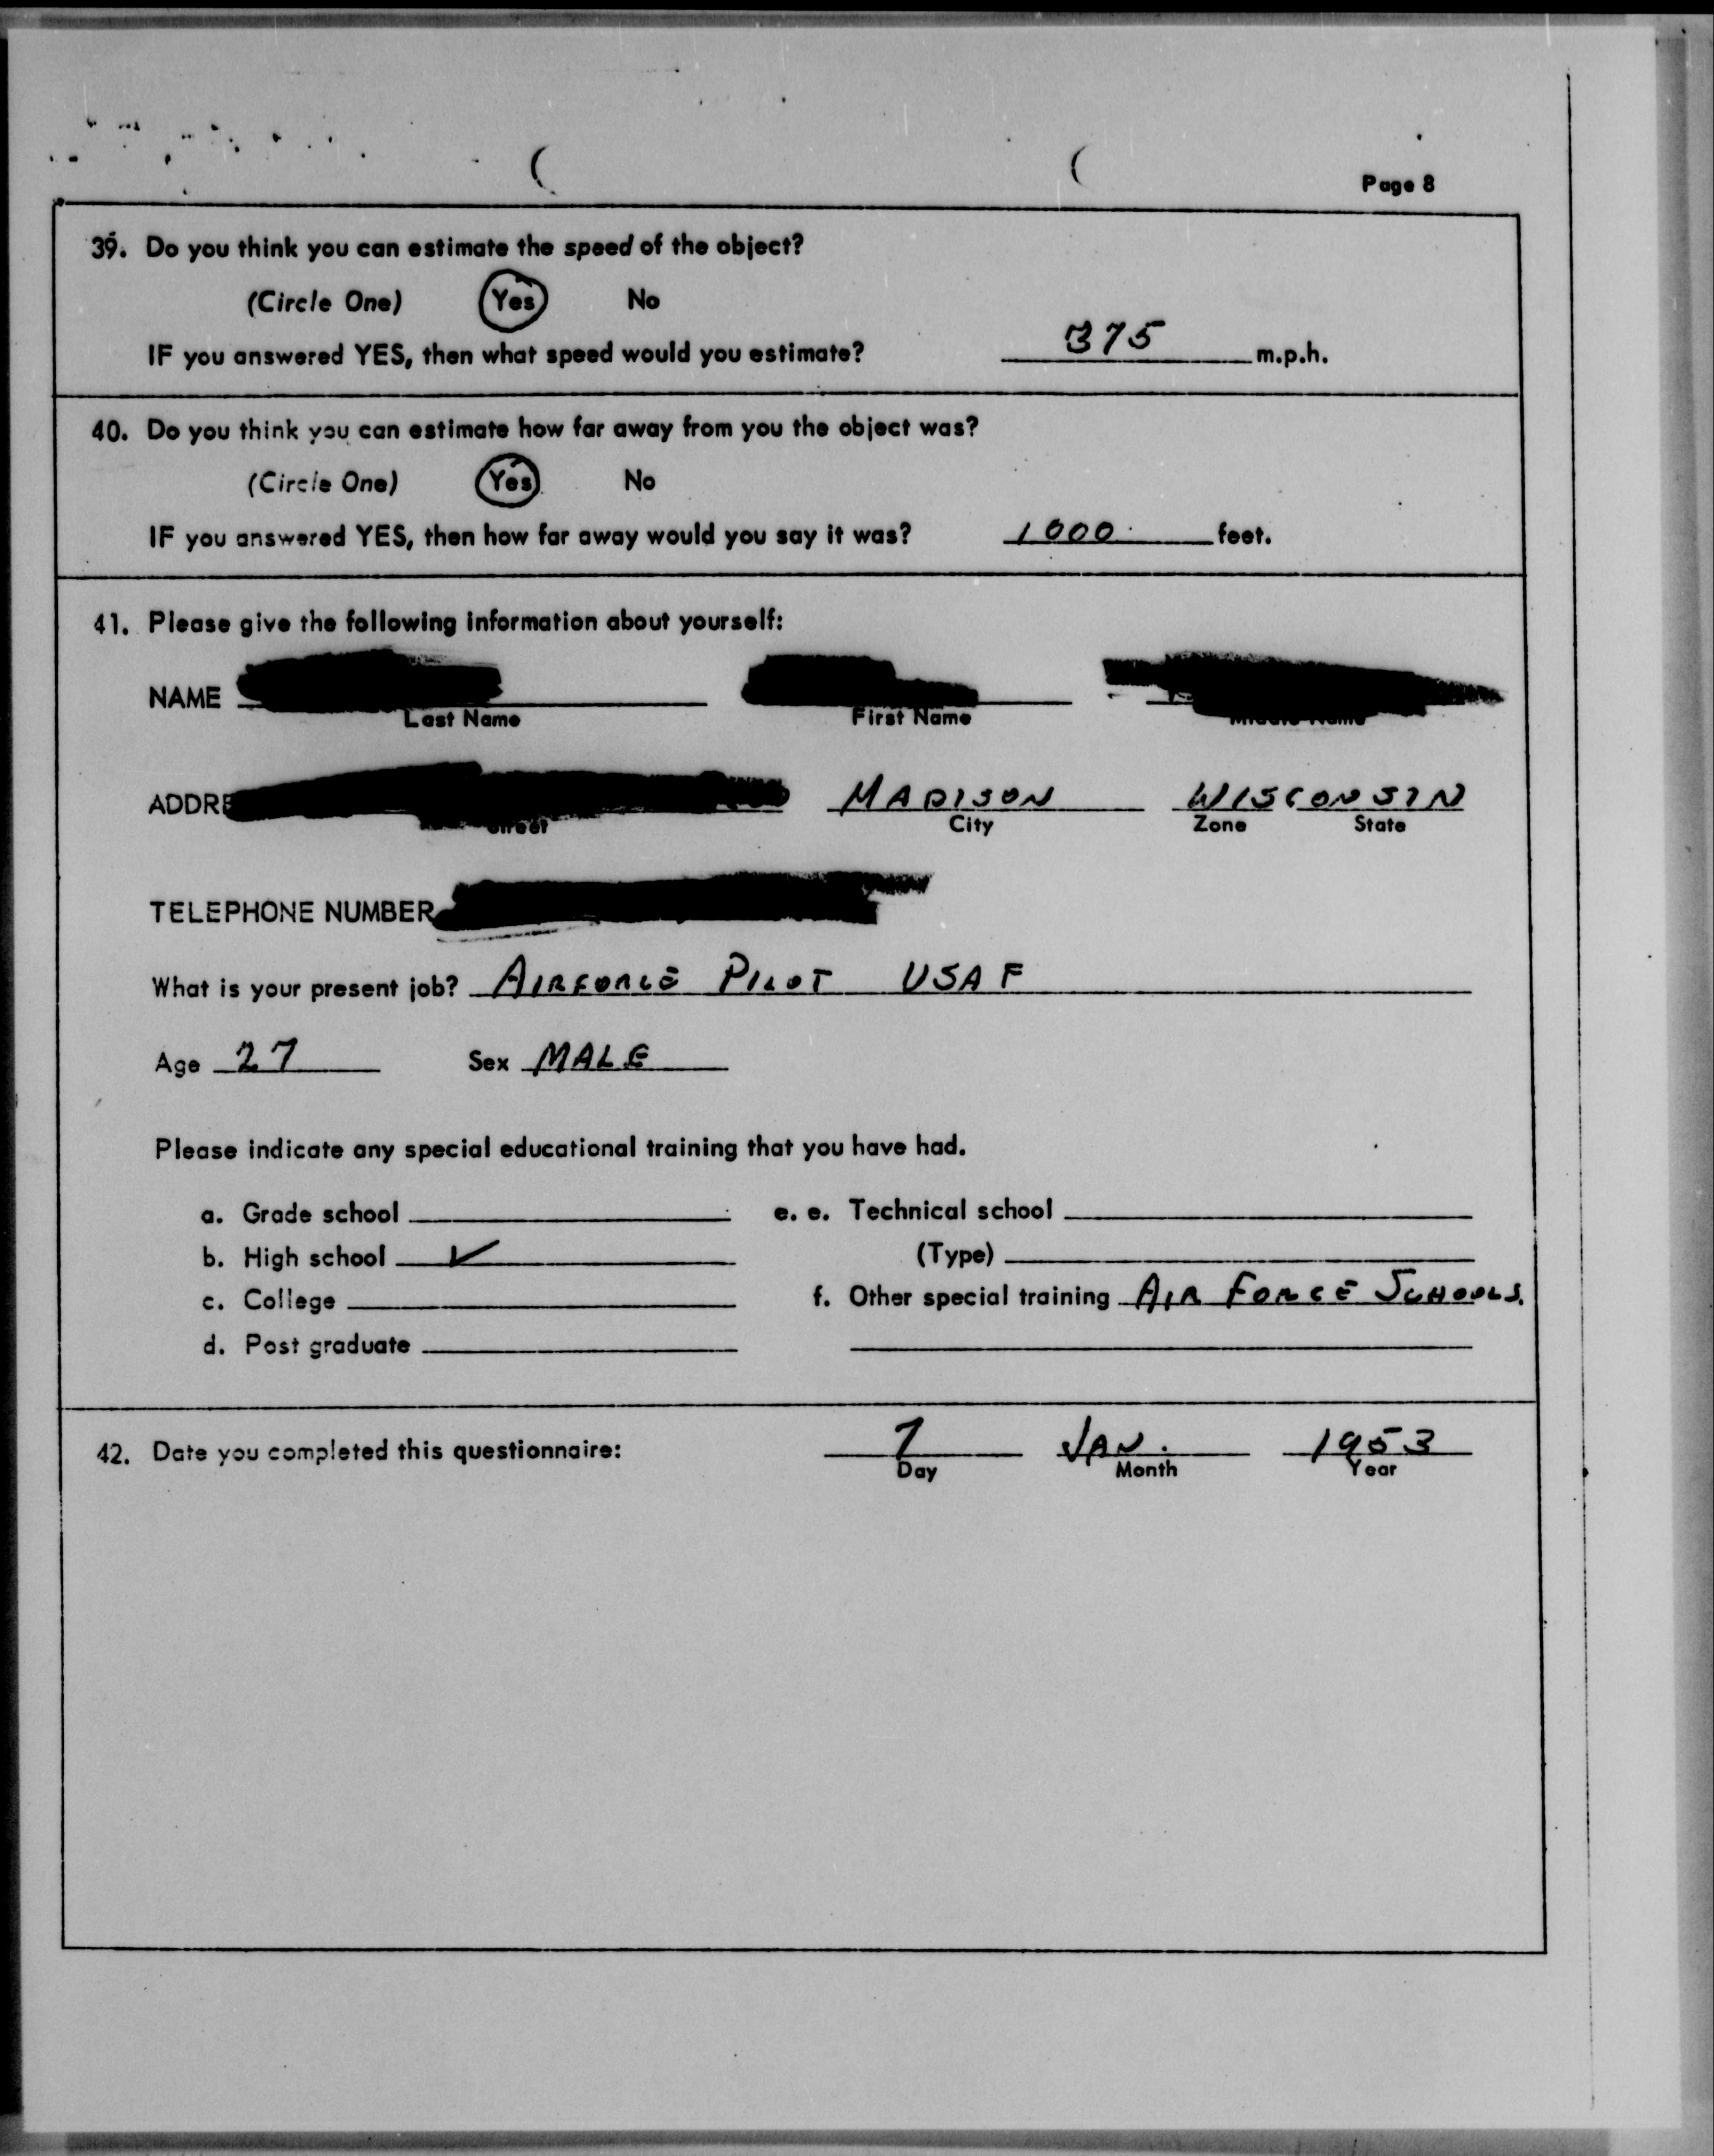 Page 8
39. Do you think you can estimate the speed of the object?
(Circle One) Yes No
IF you answered YES, then what speed would you estimate? 375 m.p.h.
40. Do you think you can estimate how far away from you the object was?
(Circle One) Yes No
IF you answered YES, then how far away would you say it was? 1000 feet.
41. Please give the following information about yourself:
NAME
Last Name First Name Middle Name
ADDRE MADISON WISCONSIN
Street City Zone State
TELEPHONE NUMBER
What is your present job? AIRFORCE PILOT USAF
Age 27 Sex MALE
Please indicate any special educational training that you have had.
a. Grade school e. e. Technical school
b. High school ✓ (Type)
c. College f. Other special training AIR FORCE SCHOOLS.
d. Post graduate
42. Date you completed this questionnaire: 7 JAN. 1953
Day Month Year